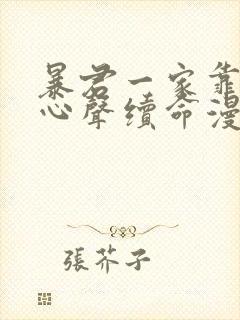 暴君一家靠
心聲續命漫
張芥子